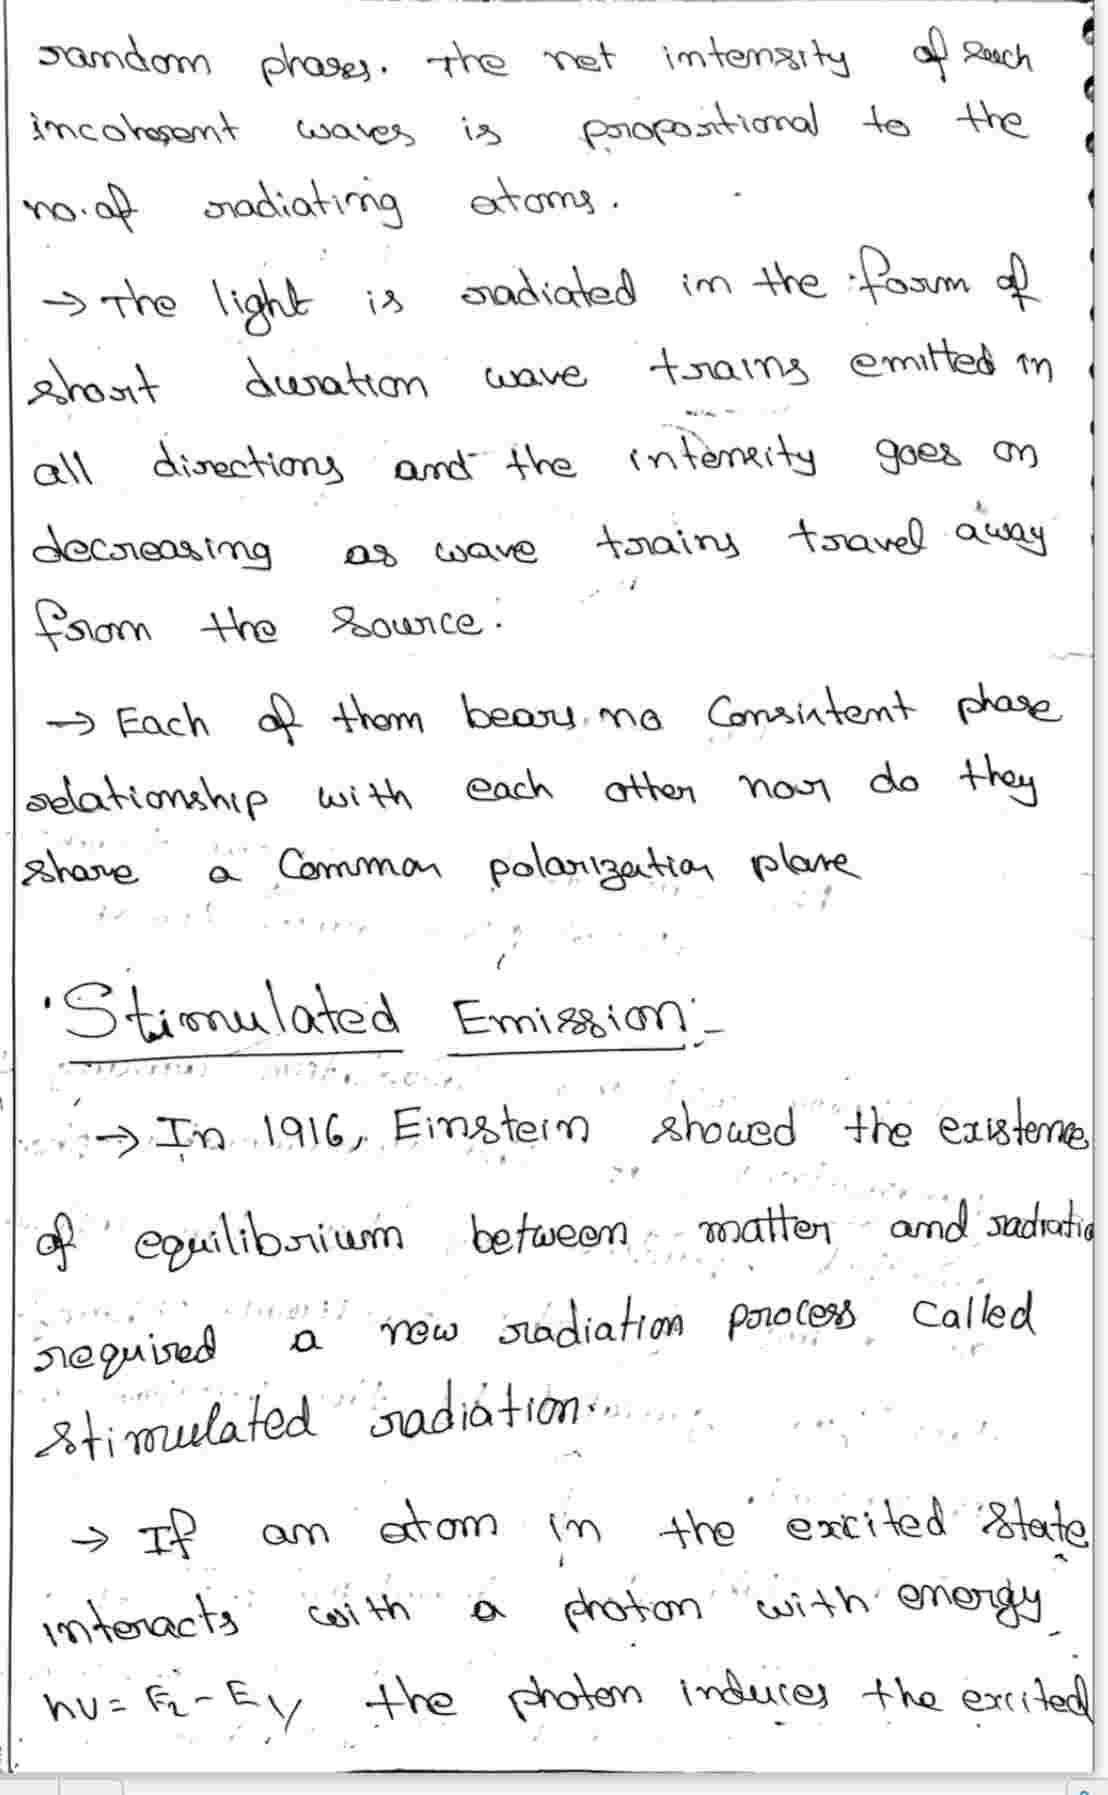 random phases. The net intensity of such
incoherent waves is proportional to the
no. of radiating atoms.
→ The light is radiated in the form of
short duration wave trains emitted in
all directions and the intensity goes on
decreasing as wave trains travel away
from the source.
→ Each of them bears no Consistent phase
relationship with each other nor do they
share a Common polarization plane
Stimulated Emission:-
→ In 1916, Einstein showed the existence
of equilibrium between matter and radiatio
required a new radiation process called
stimulated radiation.
→ If an atom in the excited state
interacts with a photon with energy
hν = E₂ - E₁, the photon induces the excited